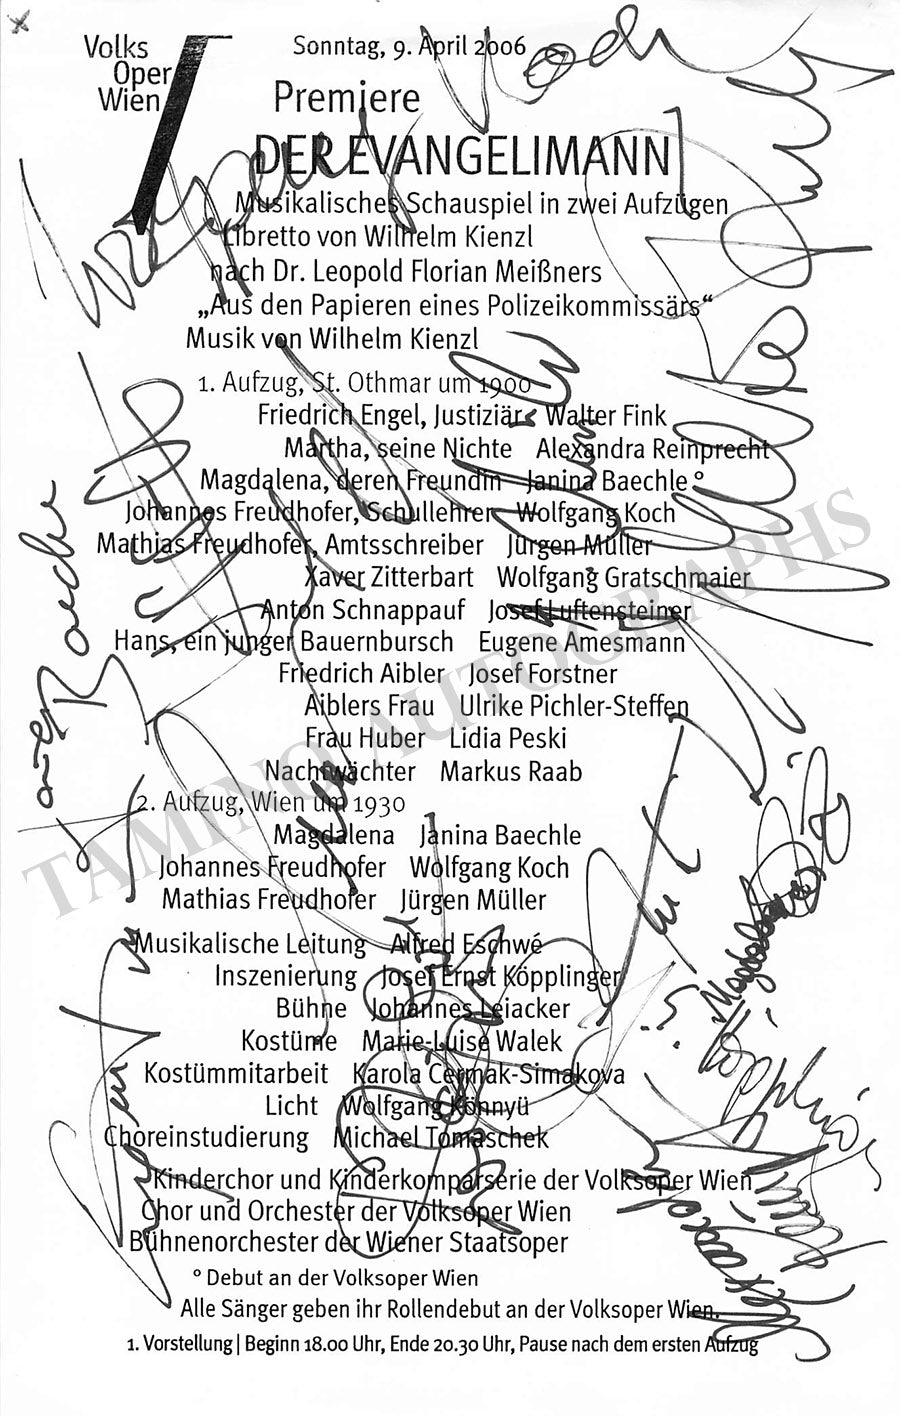 Volks
Oper
Wien
Sonntag, 9. April 2006
Premiere
DER EVANGELIMANN
Musikalisches Schauspiel in zwei Aufzügen
Libretto von Wilhelm Kienzl
nach Dr. Leopold Florian Meißners
„Aus den Papieren eines Polizeikommissärs“
Musik von Wilhelm Kienzl
1. Aufzug, St. Othmar um 1900
Friedrich Engel, Justiziär Walter Fink
Martha, seine Nichte Alexandra Reinprecht
Magdalena, deren Freundin Janina Baechle °
Johannes Freudhofer, Schullehrer Wolfgang Koch
Mathias Freudhofer, Amtsschreiber Jürgen Müller
Xaver Zitterbart Wolfgang Gratschmaier
Anton Schnappauf Josef Luftensteiner
Hans, ein junger Bauernbursch Eugene Amesmann
Friedrich Aibler Josef Forstner
Aiblers Frau Ulrike Pichler-Steffen
Frau Huber Lidia Peski
Nachtwächter Markus Raab
2. Aufzug, Wien um 1930
Magdalena Janina Baechle
Johannes Freudhofer Wolfgang Koch
Mathias Freudhofer Jürgen Müller
Musikalische Leitung Alfred Eschwé
Inszenierung Josef Ernst Köpplinger
Bühne Johannes Leiacker
Kostüme Marie-Luise Walek
Kostümmitarbeit Karola Cermak-Simakova
Licht Wolfgang Könnyü
Choreinstudierung Michael Tomaschek
Kinderchor und Kinderkomparserie der Volksoper Wien
Chor und Orchester der Volksoper Wien
Bühnenorchester der Wiener Staatsoper
° Debut an der Volksoper Wien
Alle Sänger geben ihr Rollendebut an der Volksoper Wien.
1. Vorstellung | Beginn 18.00 Uhr, Ende 20.30 Uhr, Pause nach dem ersten Aufzug
TAMINO AUTOGRAPHS
Koch
Baechle
Magdalena